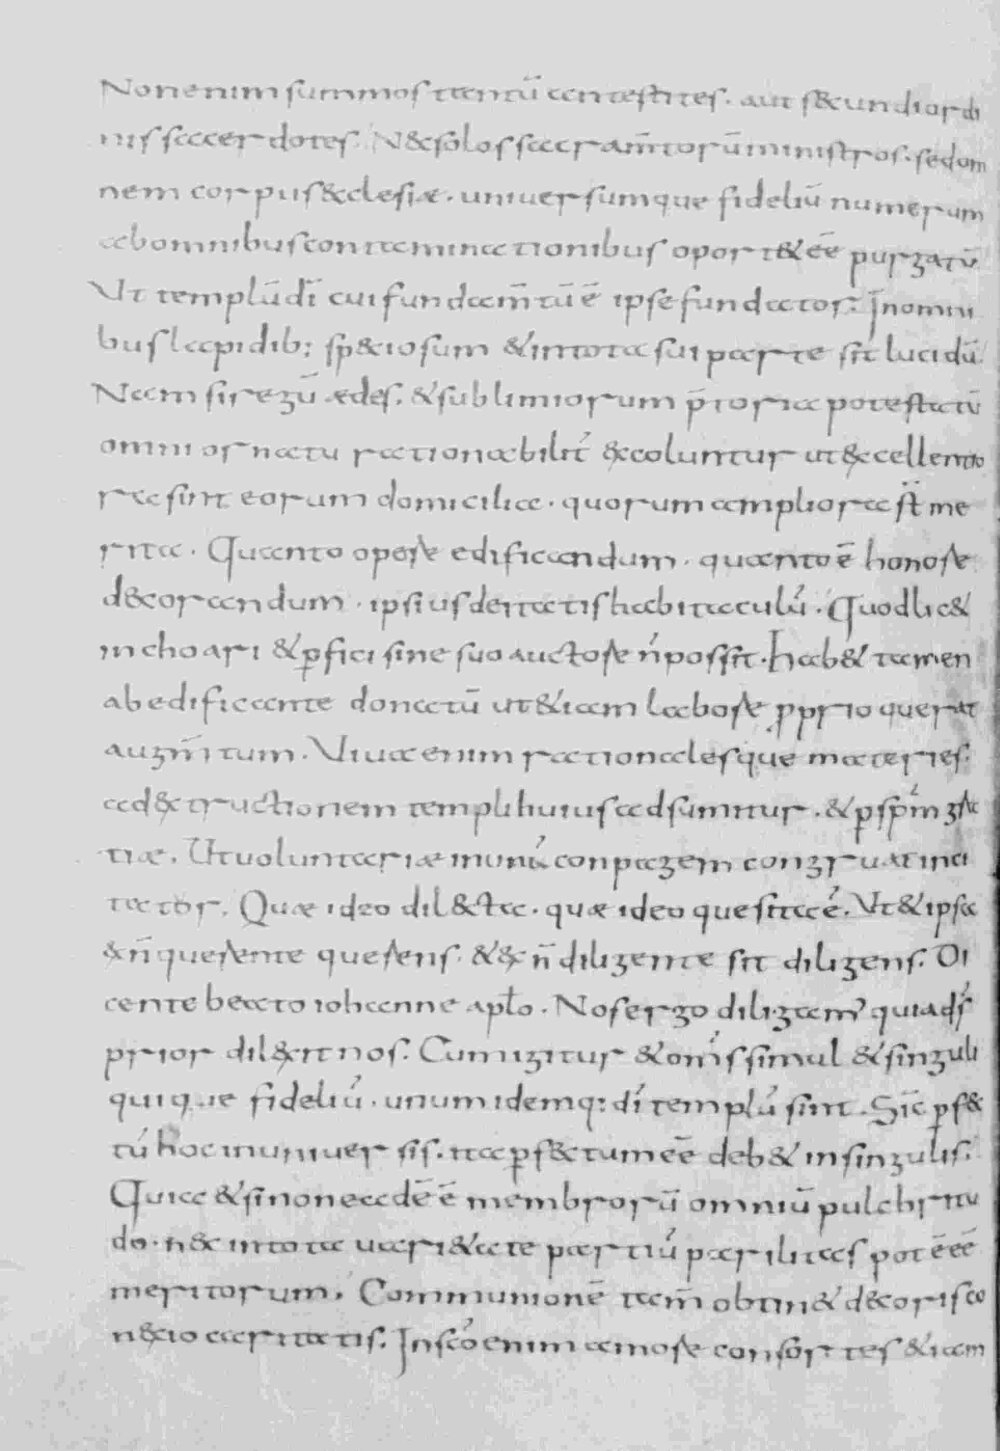 Non enim summos tantū antestites. aut s&undi ordi
nis sacerdotes. N& solos sacram̄torū ministros. sed om
nem corpus &clesiæ. universumque fideliū numerum
ab omnibus contaminationibus oport& ēē purgatū
Ut templū dī cui fundam̄tū ē ipse fundator. In omni
bus lapidib; sp&iosum & in tota sui parte sit lucidū.
Nam si regū ædes. & sublimiorum p̄toria potestatū
omni ornatu rationabilit̄ &coluntur ut &cellentio
ra sint eorum domicilia. quorum ampliora st̄ me
rita. Quanto opere edificandum. quanto ē honore
d&corandum. ipsius deitatis habitaculū. Quod lic&
inchoari & ꝑfici sine suo auctore n̄ possit. Hab& tamen
ab edificante donatū ut &iam labore ꝓprio querat
augm̄tum. Viva enim rationalesque materies.
ad &tructionem templi huius adsumitur. & ꝑ spm̄ gra
tiæ. Ut voluntariæ in unū conpagem congruat in ci
tator. Quæ ideo dil&ta. quæ ideo quesita ē. Ut & ipsa
& n̄ querente querens. & & n̄ diligente sit diligens. Di
cente beato iohanne aplo. Nos ergo diligam' quia ds̄
prior dil&it nos. Cum igitur & om̄s simul & singuli
quique fideliū. unum idemq; dī templū sint. Sic̄ ꝑf&
tū hoc in universis. ita ꝑf&tum ēē deb& in singulis.
Quia & si non eadē ē membrorū omniū pulchritu
do. n& in tota vari&ate partiū parilitas pot ē ēē
meritorum. Communionē tam̄ obtin& d&oris co
n&io caritatis. In sc̄o enim amore consortes &iam